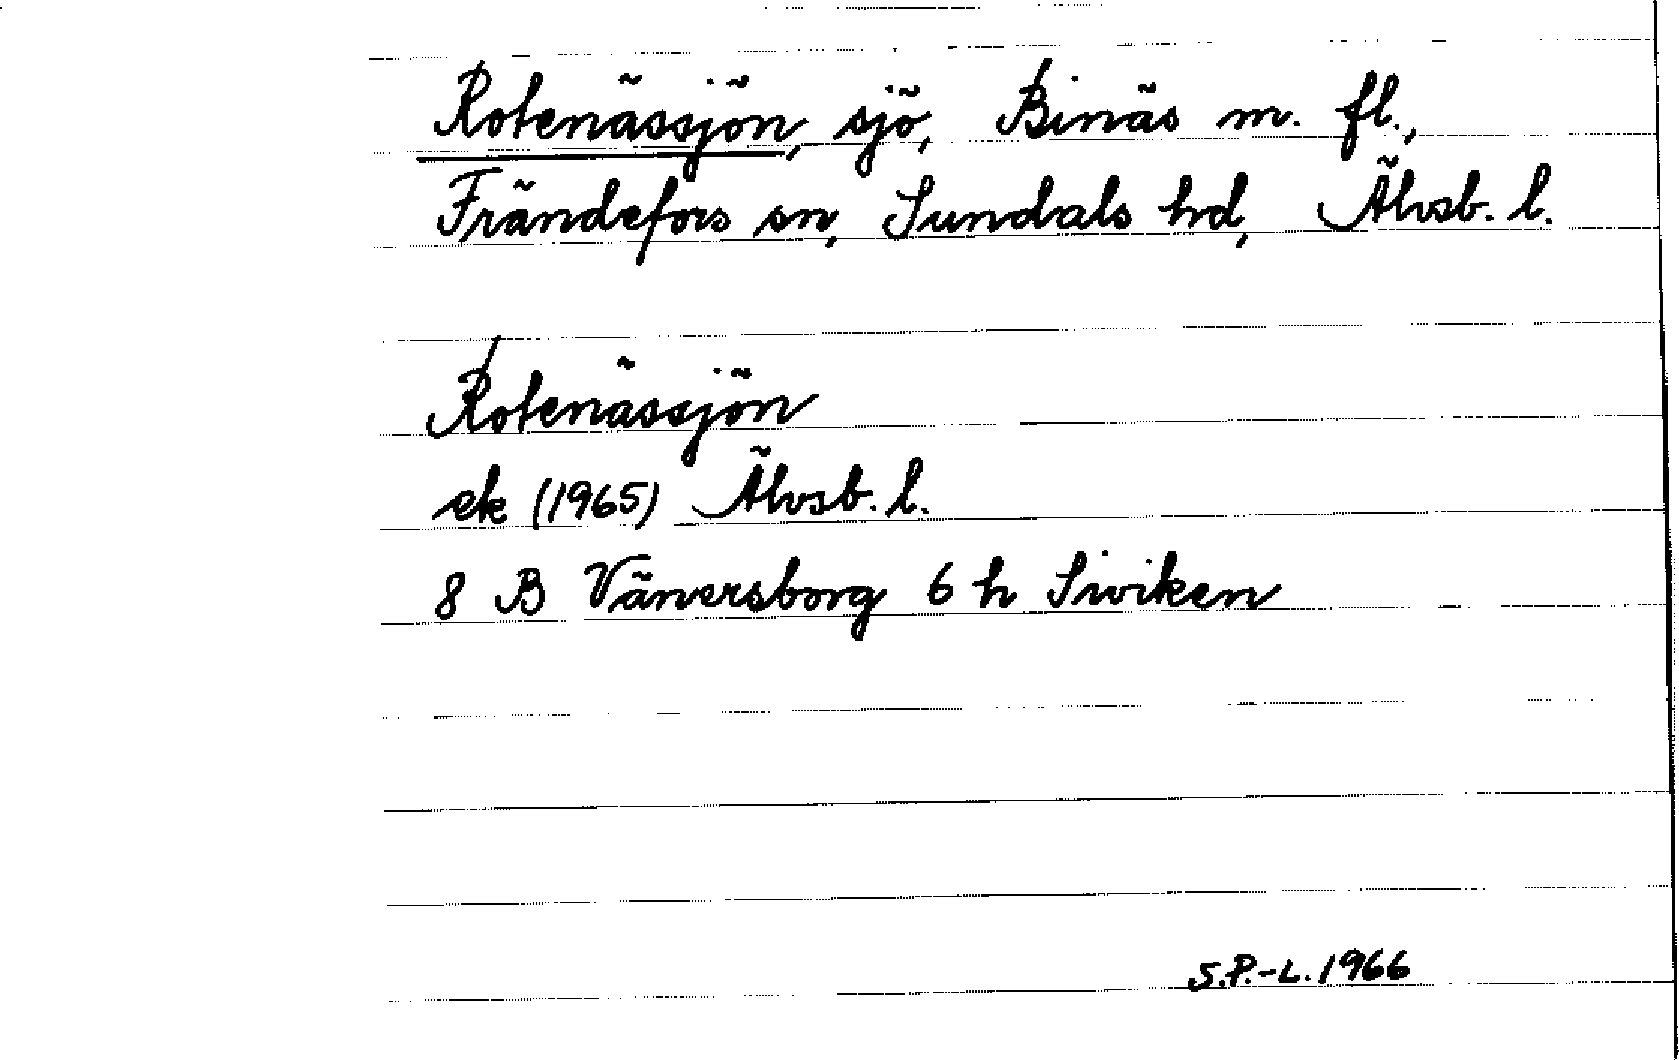 Rotenässjön, sjö, Binäs m. fl.,
Frändefors sn, Sundals hd, Älvsb. l.
Rotenässjön
ek (1965) Älvsb. l.
8 B Vänersborg 6 h Siviken
S.P.-L. 1966